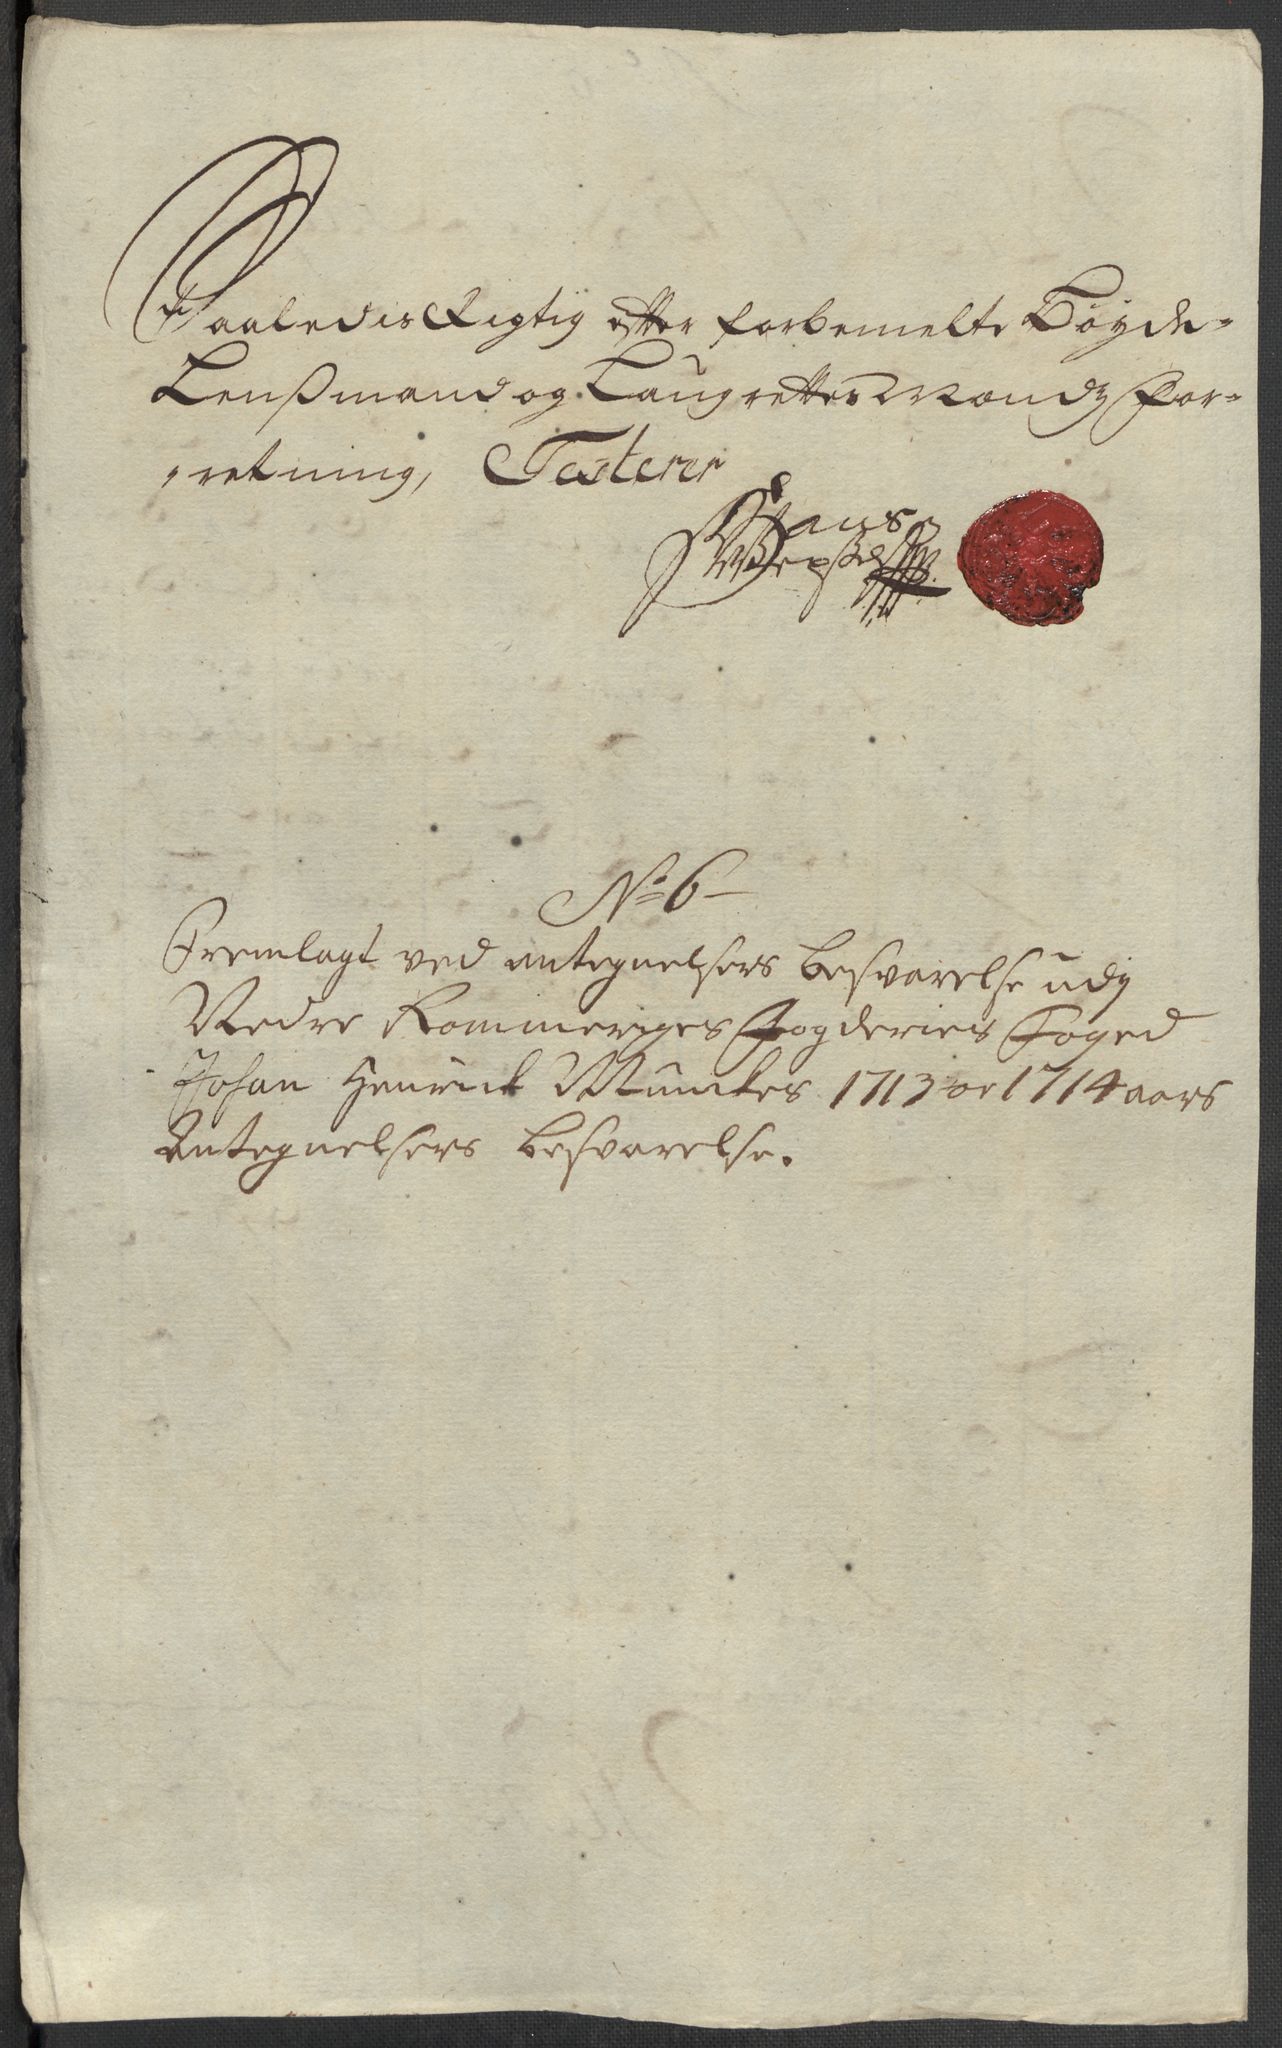 Saaledis Rigtig efter forbemelte Bøyde-
Lenßmand og Laugrettes Mands For-
retning, Testerer
Hans
No 6
Fremlagt ved antegnelsers besvarelse udj
Nedre Rommeriges Fogderies Foged
Johan Henrick Munckes 1713 og 1714 aars
Antegnelsers besvarelse.